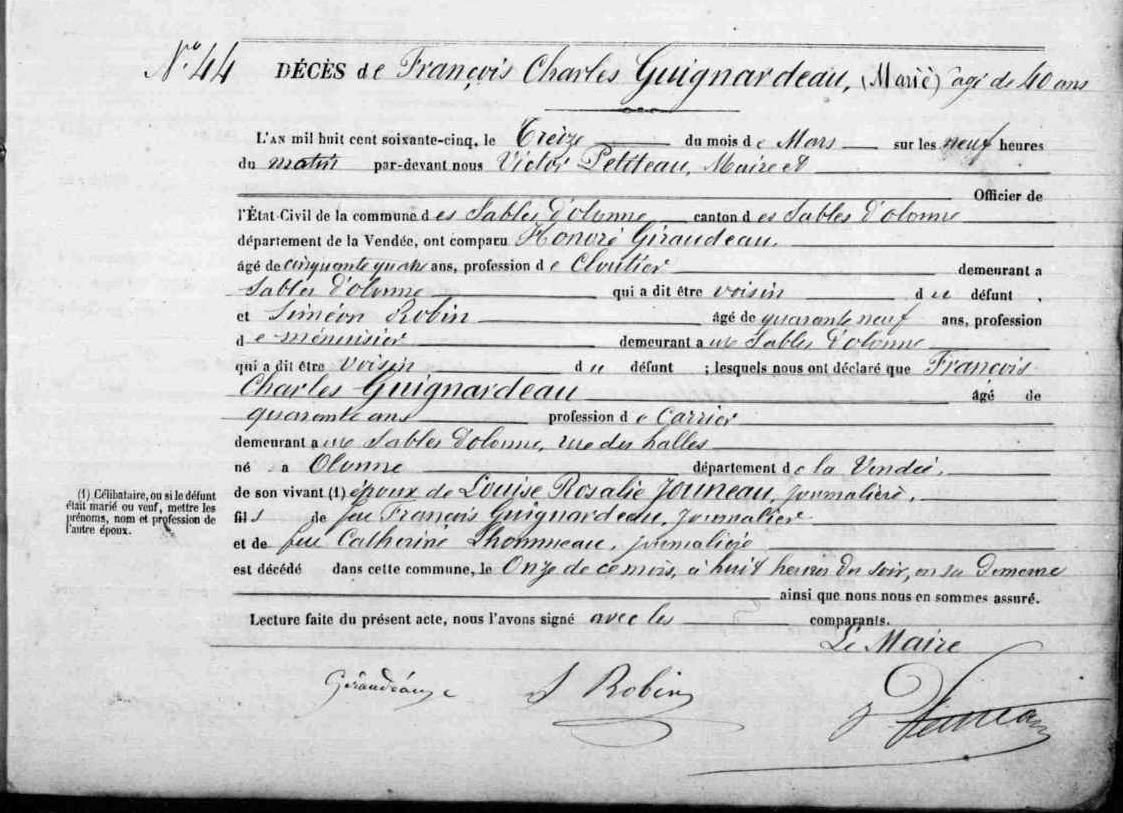 N° 44 DÉCÈS de François Charles Guignardeau, (Marié) agé de 40 ans
L'AN mil huit cent soixante-cinq, le Treize du mois de Mars sur les neuf heures
du matin par-devant nous Victor Petiteau, Maire et
Officier de
l'État-Civil de la commune des Sables d'olonne canton des Sables d'olonne
département de la Vendée, ont comparu Honoré Giraudeau,
âgé de cinquante quatre ans, profession de Cloutier demeurant a
Sables d'olonne qui a dit être voisin du défunt,
et Siméon Robin âgé de quarante neuf ans, profession
de ménuisier demeurant aux Sables d'olonne
qui a dit être voisin du défunt ; lesquels nous ont déclaré que François
Charles Guignardeau âgé de
quarante ans profession de Carrier
demeurant aux Sables d'olonne, rue des halles
né a Olonne département de la Vendée,
(1) Célibataire, ou si le défunt
était marié ou veuf, mettre les
prénoms, nom et profession de
l'autre époux.
de son vivant (1) époux de Louise Rosalie Jouneau, journalière,
fils de feu François Guignardeau, journalier
et de feue Catherine Lhommeau, journalière
est décédé dans cette commune, le Onze de ce mois, à huit heures du soir, en sa demeure
ainsi que nous nous en sommes assuré.
Lecture faite du présent acte, nous l'avons signé avec les comparants.
Le Maire
Giraudeau S Robin